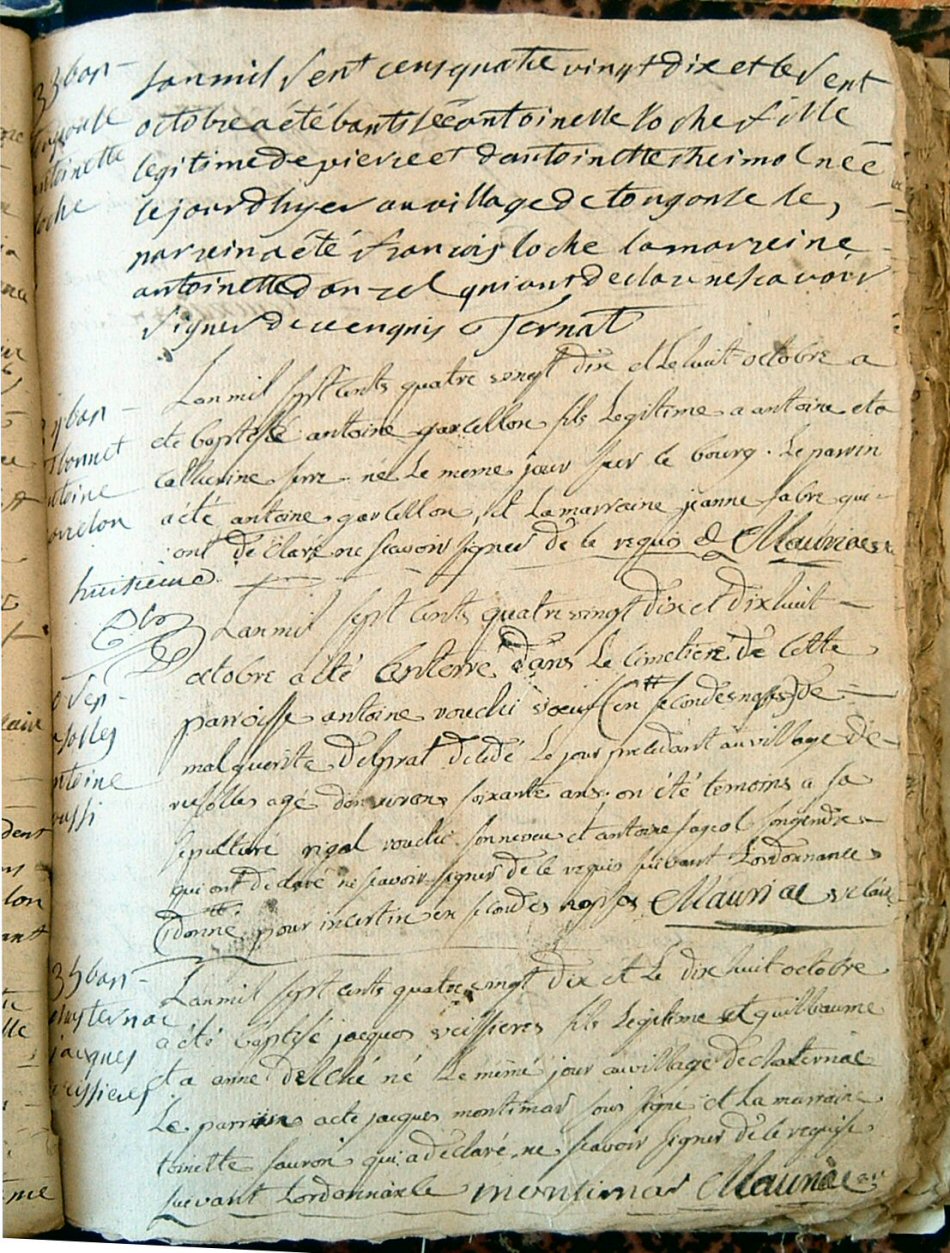 33 bap-
antoinette
loche
Lan mil sept cens quatre vingt dix et le sept
octobre a été batissée antoinette loche fille
legitime de pierre et dantoinette née
le jour dhyer au village de tougouse le,
parrein a été francois loche la marreine
antoinette qui ont declaré ne scavoir
signer de ce enquis Ternat
bap-
bonnet
antoine
Lan mil sept cents quatre vingt dix et le huit octobre a
eté baptisé antoine garcellon fils Legitime a antoine et a
Catherine serre né Le meme jour sur le bourg. Le parrin
a été antoine garcellon, et La marraine jeanne fabre qui
ont declaré ne scavoir signer de ce requis Mauriac
huitieme
Lan mil sept cents quatre vingt dix et dix huit
octobre a été Enterré dans Le cimetiere de Cette
parroisse antoine vouchi voeuf (en secondes nopses) de
malguerite delprat décédé Le jour precedant au village de
rusolles agé denviron soixante ans. on été temoins a sa
sepulture rigal vouchi son neveu et antoine sageol son gendre
qui ont declaré ne scavoir signer de ce requis suivant Lordonnance
donné pour incertin en secondes nopses Mauriac
antoine
35 bap-
jacques
veissieres
Lan mil sept cents quatre vingt dix et Le dix huit octobre
a été baptisé jacques veissieres fils Legitime et guilbaume
et a anne delché né Le même jour au village de chasternac
Le parrain a eté jacques montimar sous signé et La marraine
toinette sauron qui a declaré ne scavoir signer de ce requise
suivant Lordonnance montimar Mauriac